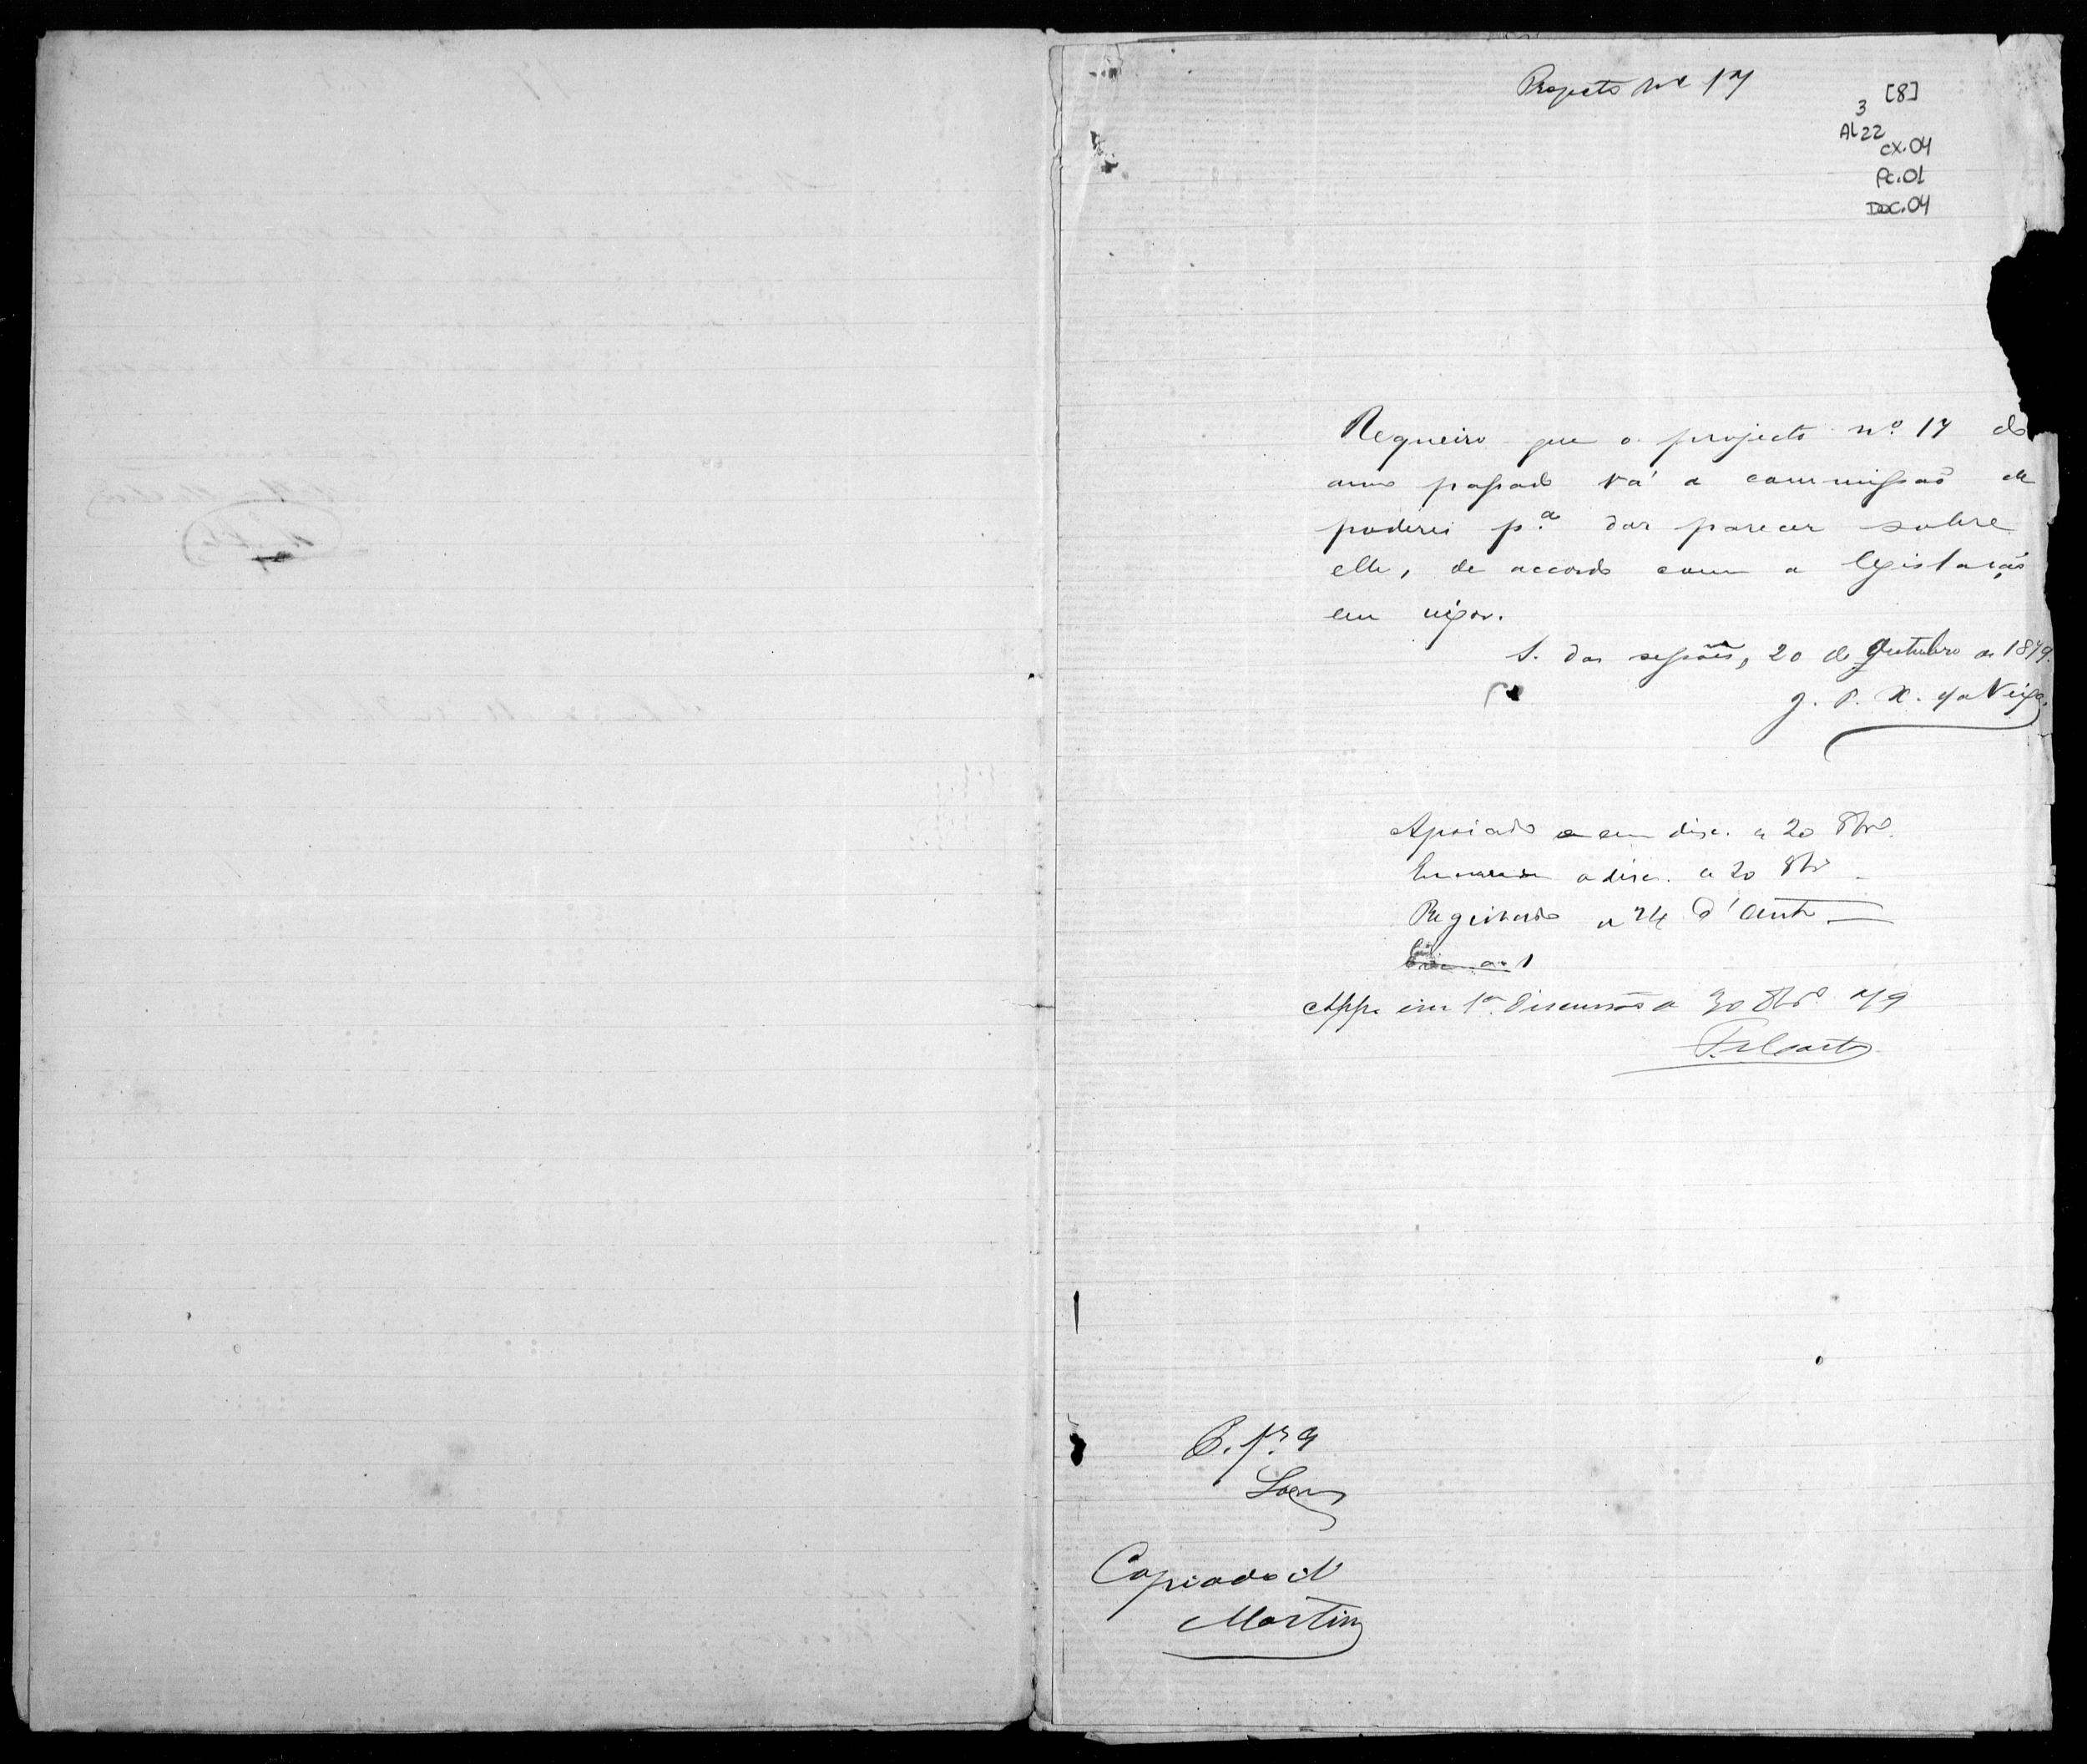 Projecto Nº 17
[8]
3
AL22
cx.04
Pc.01
Doc.04
Requeiro que o projecto nº 17 do
anno passado vá a commissão de
poderes p.ª dar parecer sobre
elle, de accordo com a legislação
em vigor.
S. das sessões, 20 de Outubro de 1879.
J. P. X. da Veiga.
Apoiado e em disc. a 20 8bro.
a disc. a 20 8bro
Registrado a 24 d'Outº
App. em 1ª discussão a 30 8bro 79
Copiado
Martins